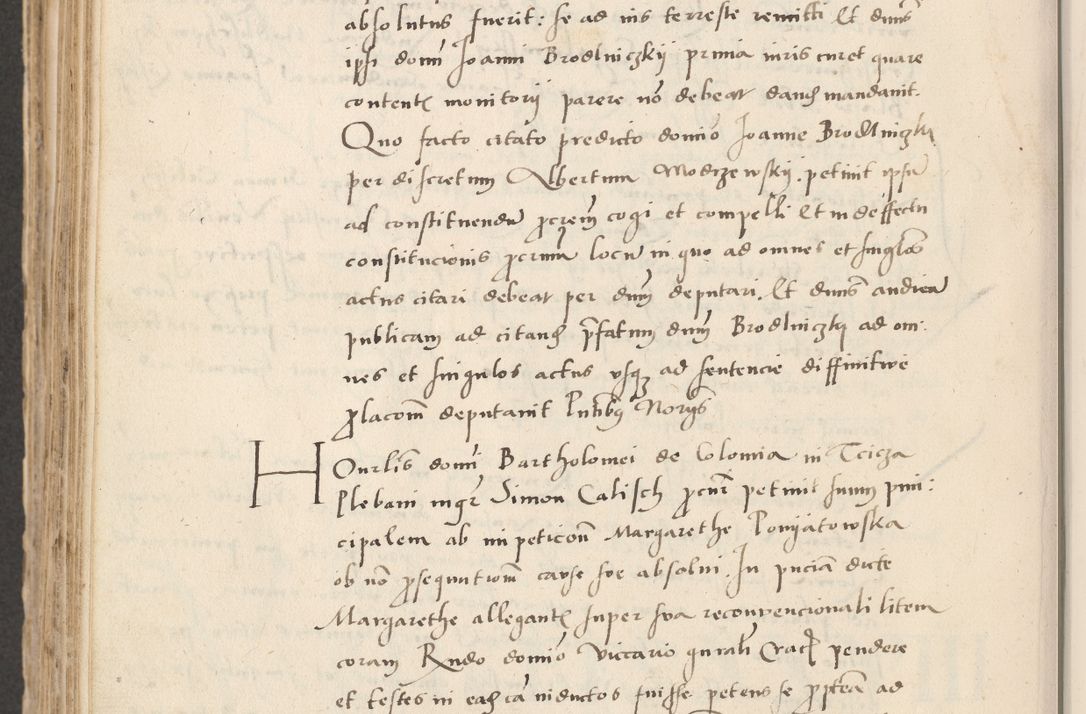 absolutus fuerit: se ad ius terreste remitti Et dnus
ipsi domi Joanni Brodlniczkij prima iuris curet quare
content monitorij parere no debeat dand mandauit.
Quo facto citato predicto domio Joanne Brodlniczky
per discretum Albertum Modrzewskij. petiuit ipsu
ad constituendu procrem cogi et compelli Et in deffectu
constitucionis procrum locu in quo ad omnes et singlos
actus citari debeat per dnm deputari. Et dnus audiea
publicam ad citand prefatum dnm Brodlniczky ad om:
nes et singulos actus vsq ad sentencie diffinitive
prolacom deputauit Pntibq Norys
Honrlis domi Bartholomei de Colomia in Tcicza
Plebani mgr Simon Calisch procur petiuit suum prin:
cipalem ab impeticon Margarethe Poniatowska
ob no prosequutiom cause sve absolui. In pncia dicte
Margarethe allegant super sva reconvencionali litem
coram Rndo domio Viccario gnrali Crac pendere
et testes in ead ca inductos fuisse petens se proptea ad